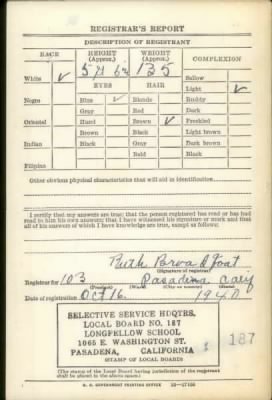 REGISTRAR'S REPORT
DESCRIPTION OF REGISTRANT
RACE HEIGHT (Approx.) WEIGHT (Approx.) COMPLEXION
5 ft 6 in 135
White ✓ EYES HAIR Sallow
Light ✓
Negro Blue ✓ Blonde Ruddy
Gray Red Dark
Oriental Hazel Brown ✓ Freckled
Brown Black Light brown
Indian Black Gray Dark brown
Bald Black
Filipino
Other obvious physical characteristics that will aid in identification
I certify that my answers are true; that the person registered has read or has had
read to him his own answers; that I have witnessed his signature or mark and that
all of his answers of which I have knowledge are true, except as follows:
Ruth
(Signature of registrar)
Registrar for 103 Pasadena Calif
(Precinct) (Ward) (City or county) (State)
Date of registration Oct 16. 1940
SELECTIVE SERVICE HDQTRS.
LOCAL BOARD NO. 187
LONGFELLOW SCHOOL
1065 E. WASHINGTON ST.
PASADENA, CALIFORNIA
187
(STAMP OF LOCAL BOARD)
(The stamp of the Local Board having jurisdiction of the registrant
shall be placed in the above space)
U. S. GOVERNMENT PRINTING OFFICE 16—17105